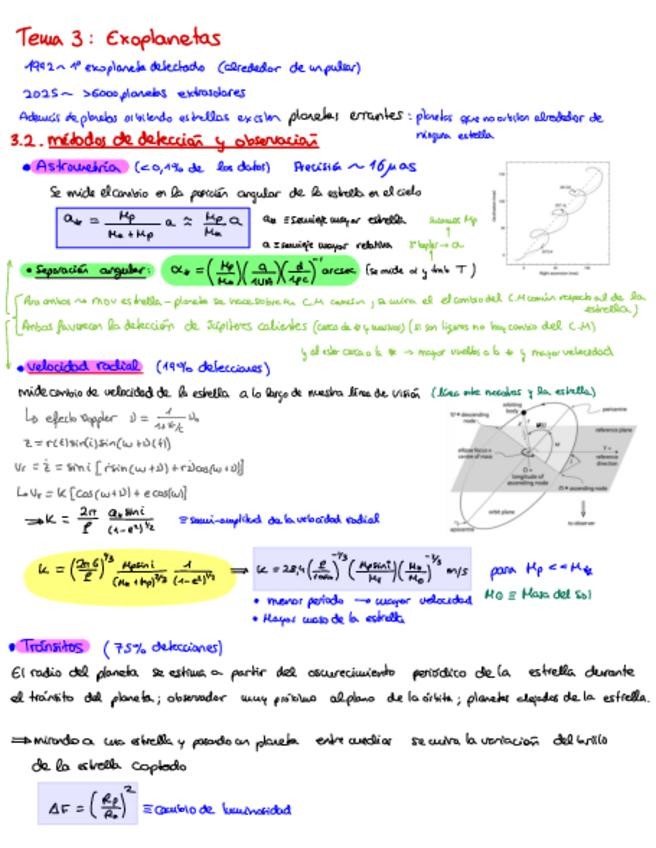 Tema 3: Exoplanetas
1992 ~ 1º exoplaneta detectado (alrededor de un pulsar)
2025 ~ >6000 planetas extrasolares
Además de planetas orbitando estrellas existen planetas errantes: planetas que no orbitan alrededor de
ninguna estrella
3.2. métodos de detección y observación
• Astrometría (<0,1% de los datos) Precisión ~ 16 μas
Se mide el cambio en la posición angular de la estrella en el cielo
a* = Mp/(M* + Mp) a ≈ Mp/M* a
a* ≡ semieje mayor estrella
a ≡ semieje mayor relativa
• Separación angular: α* = (Mp/M*)(a/1UA)(d/1pc)⁻¹ arcsec (se mide α y T)
Para ambos no mov estrella-planeta se mueve sobre su C.M común, se mira el cambio del C.M común respecto al de la
estrella)
Ambas favorecen la detección de Júpiteres calientes (cerca de * y masivos) (si son ligeros no hay cambio del C.M)
y al estar cerca a la * → mayor vueltas a la * y mayor velocidad
• velocidad radial (19% detecciones)
mide cambio de velocidad de la estrella a lo largo de nuestra línea de visión (línea entre nosotros y la estrella)
↳ efecto Doppler
z = r(t) sin(i) sin(ω + υ(t))
Vr = ż = sin i [ṙ sin(ω + υ) + rυ̇ cos(ω + υ)]
↳ Vr = K [cos(ω + υ) + e cos(ω)]
⇒ K = 2π/P a* sin i/(1-e²)^1/2 ≡ semi-amplitud de la velocidad radial
orbiting body
pericentre
descending node
reference plane
ellipse focus = centre of mass
reference direction
longitude of ascending node
ascending node
orbit plane
apocentre
to observer
K = (2πG/P)^1/3 Mp sin i/(M* + Mp)^2/3 1/(1-e²)^1/2 ⇒ K = 28,4 (P/)^-1/3 (Mp sin i/)(M*/)^-2/3 m/s para Mp << M*
M⊙ ≡ Masa del Sol
• menor periodo → mayor velocidad
• Mayor masa de la estrella
• Tránsitos (75% detecciones)
El radio del planeta se estima a partir del oscurecimiento periódico de la estrella durante
el tránsito del planeta; observador muy próximo al plano de la órbita; planetas alejados de la estrella.
⇒ mirando a una estrella y pasando un planeta entre medias se mira la variación del brillo
de la estrella captado
ΔF = (Rp/R*)² ≡ cambio de luminosidad